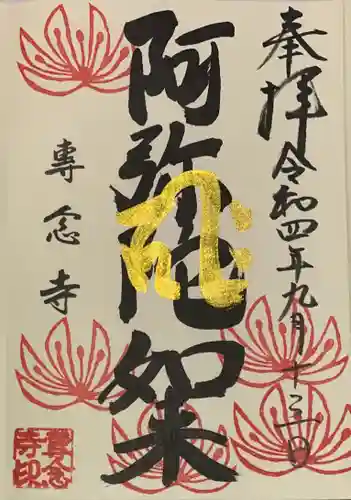 奉拝
令和四年九月十三日
阿弥陀如来
專念寺
專念寺印